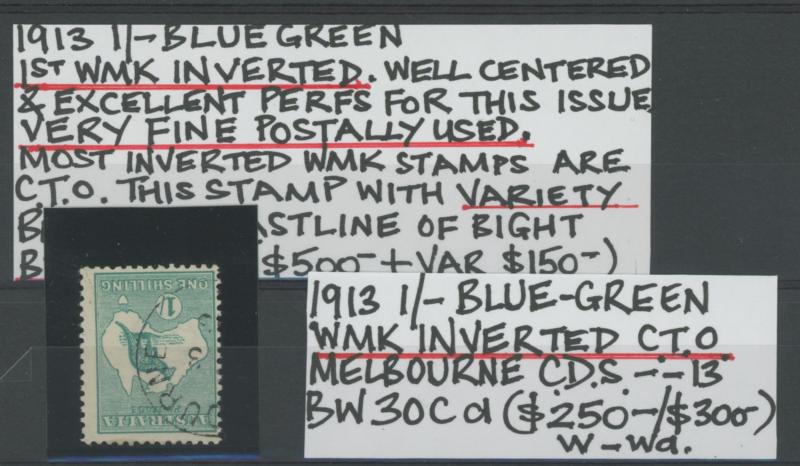 1913 1/- BLUE GREEN
1ST WMK INVERTED. WELL CENTERED
& EXCELLENT PERFS FOR THIS ISSUE
VERY FINE POSTALLY USED.
MOST INVERTED WMK STAMPS ARE
C.T.O. THIS STAMP WITH VARIETY
ASTLINE OF BIGHT
$500- + VAR $150-)
ONE SHILLING
1
AUSTRALIA
URNE
1913 1/- BLUE-GREEN
WMK INVERTED C.T.O.
MELBOURNE C.D.S. -·-13
BW30Ca ($250-/$300-)
W-Wa.